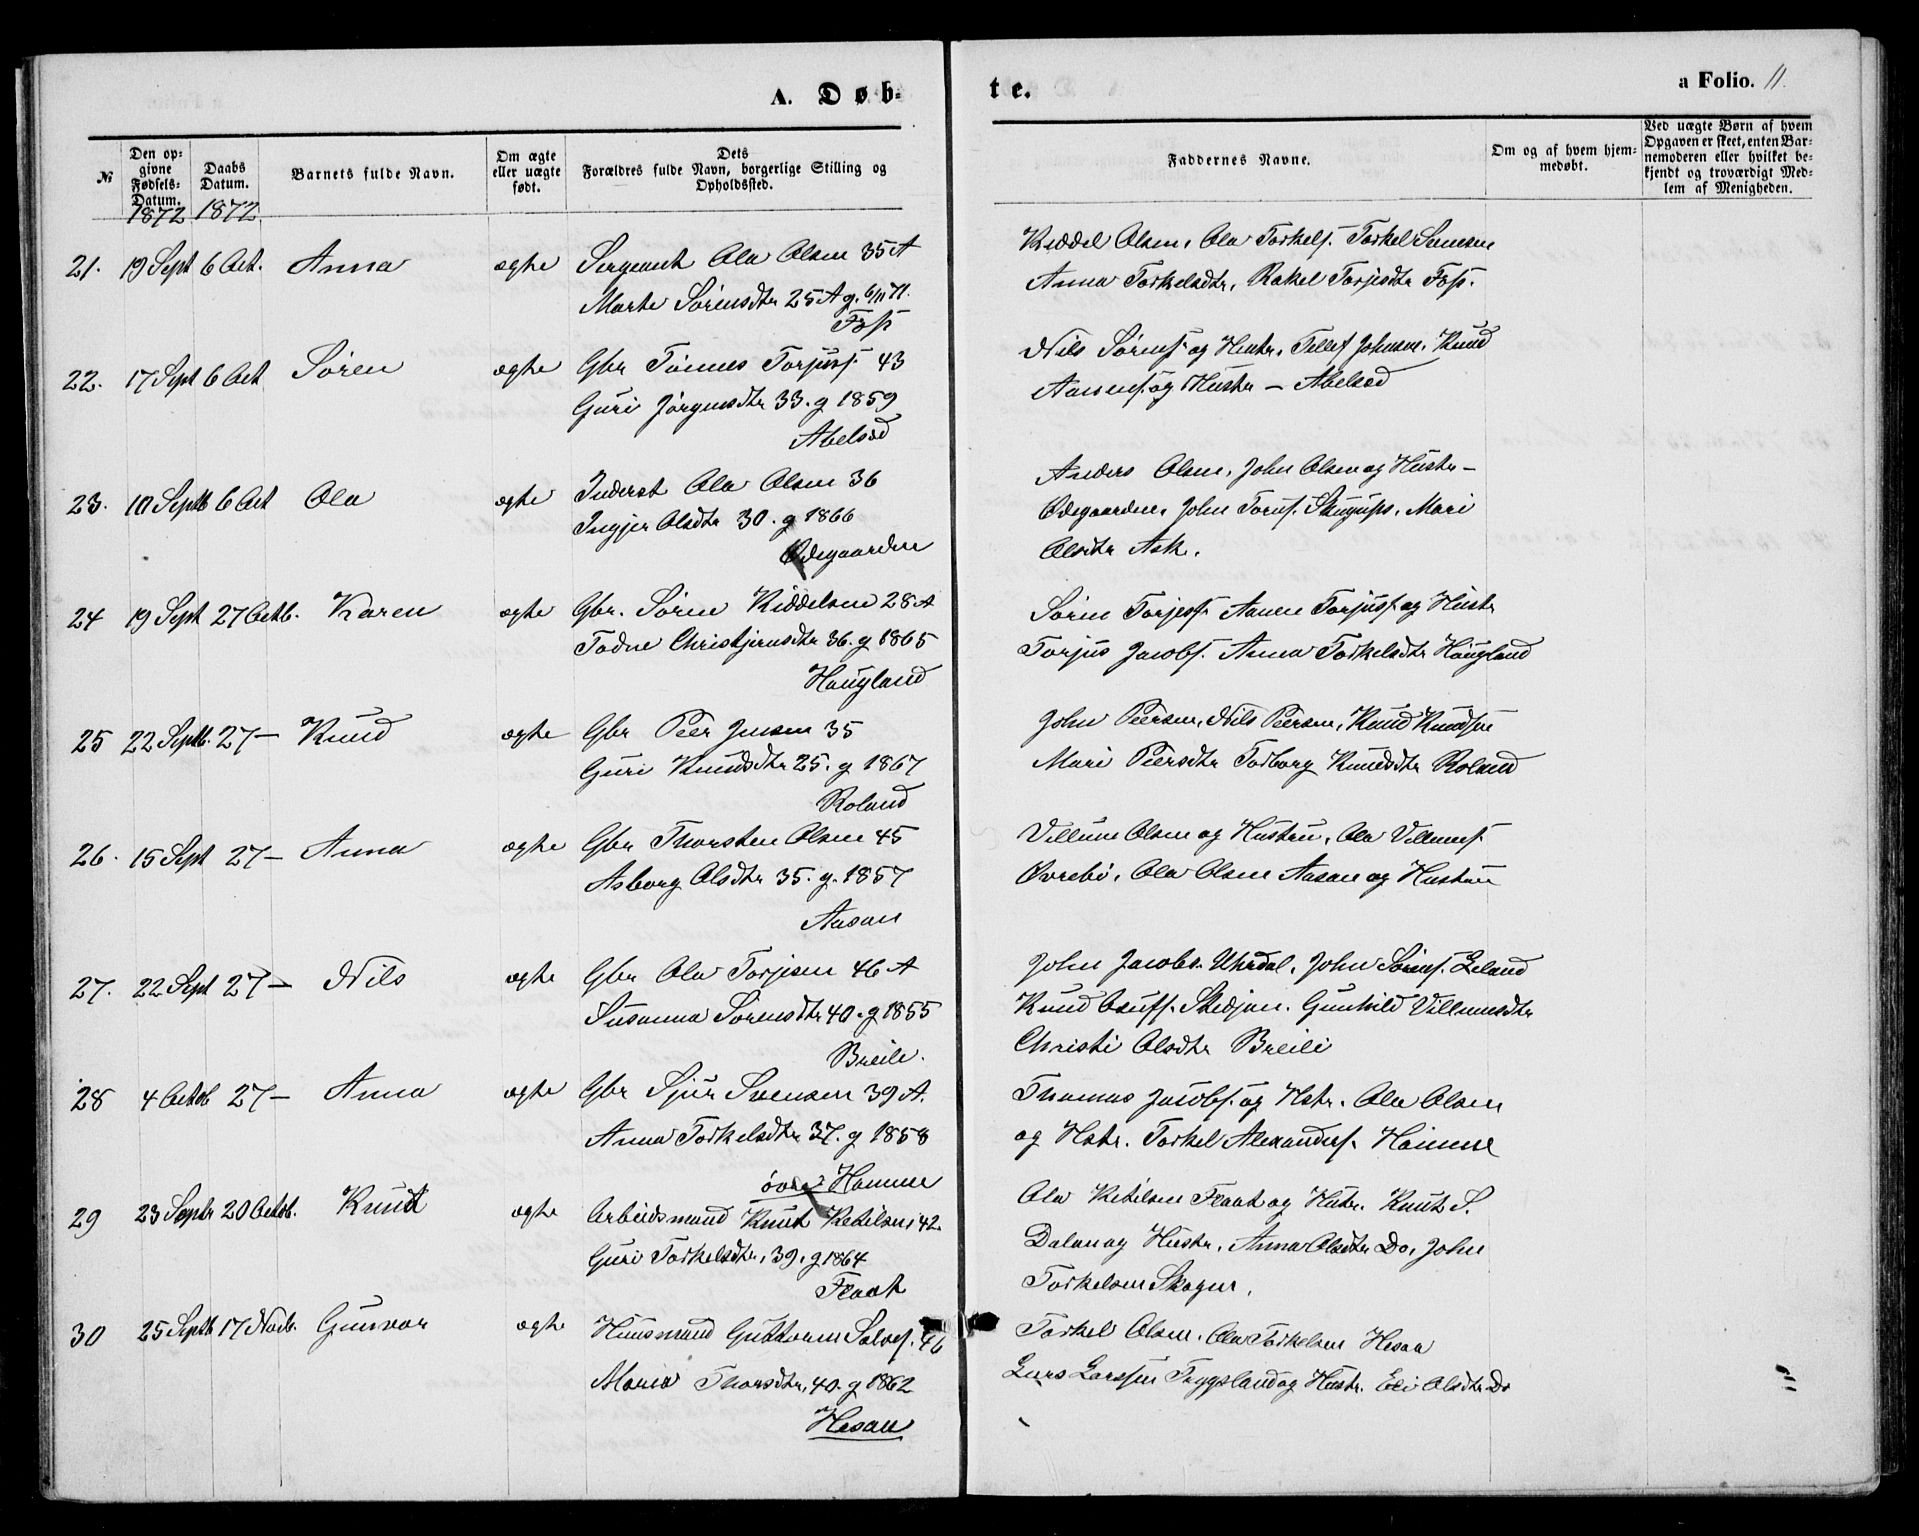 A. Døb-
te.
a Folio. 11.
№
Den opgivne Fødsels-Datum.
Daabs Datum.
Barnets fulde Navn.
Om ægte eller uægte født.
Dets Forældres fulde Navn, borgerlige Stilling og Opholdssted.
Faddernes Navne.
Om og af hvem hjemmedøbt.
Ved uægte Børn af hvem Opgaven er skeet, enten Barnemoderen eller hvilket bekjendt og troværdigt Medlem af Menigheden.
1872 1872
21. 19 Sept 6 Oct. Anna ægte Sergeant Ola Olsen 35 A
Marte Sørensdtr 25 A g. 6/11 71.
Foss
Kiddel Olsen, Ola Torkels. Torkel
Anna Torkelsdtr, Rakel Torjesdtr Foss.
22. 17 Sept 6 Oct Søren ægte Gbr Tønnes Torjuss. 43
Guri Jørgensdtr 33. g 1859
Abelsed
Nils Sørens. og Hustr. Tellef Johnsen. Knud
Aanens. og Hustr – Abelsed
23. 10 Septb 6 Oct Ola ægte Inderst Ola Olsen 36
Ingjer Olsdtr 30. g 1866
Ødegaarden
Anders Olsen, John Olsen og Hustr –
Ødegaarden, John Mari
Olsdtr Ask.
24 19 Sept 27 Octb. Karen ægte Gbr. Søren Kiddelsen 28 A
Todne Christjernsdtr 36. g 1865
Haugland
Søren Torjess. Aanen Torjuss. og Hustr
Torjus Jacobs. Anna Torkelsdtr Haugland
25 22 Septb. 27 – Knud ægte Gbr Peer Jensen 35
Guri Knudsdtr 25. g 1867
Roland
John Peersen, Nils Peersen, Knud Knudsen
Mari Peersdtr Torborg Knudsdtr Roland
26. 15 Sept 27 – Anna ægte Gbr Thorsten Olsen 45
Asborg Olsdtr 35. g. 1857
Aasan
Villum Olsen og Hustru, Ola Villums.
Øvrebö, Ola Olsen Aasan og Hustru
27. 22 Sept 27 – Nils ægte Gbr Ola Torjesen 46 A
Susanna Sörensdtr 40. g 1855
Breili.
John Jacobs. Uhrdal, John Sörens. Eeland
Knud Skedjan. Gunhild Villumsdtr
Christi Olsdtr Breili
28 4 Octob 27 – Anna ægte Gbr Sjur Svensen 39 A.
Anna Torkelsdtr 37. g 1858
övre Homme
Thomas Jacobs. og Hstr. Ola Olsen
og Hstr. Torkel Alexanders. Homme
29 23 Septr 20 Octob. Knut ægte Arbeidsmand Knut Ketilsen 42
Guri Torkelsdtr, 39, g 1864
Flaat
Ola Ketilsen Flaat og Hstr. Knut S.
Dalen og Hustr, Anna Olsdtr Do, John
Torkelsen
30 25 Septb 17 Novb. Gunvor ægte Huusmand Guttorm Salves. 46
Maria Thorsdtr, 40. g 1862
Hesaa
Torkel Olsen, Ola Torkelsen Hesaa
Lars Larssen Trygsland og Hustr. Eli Olsdtr Do